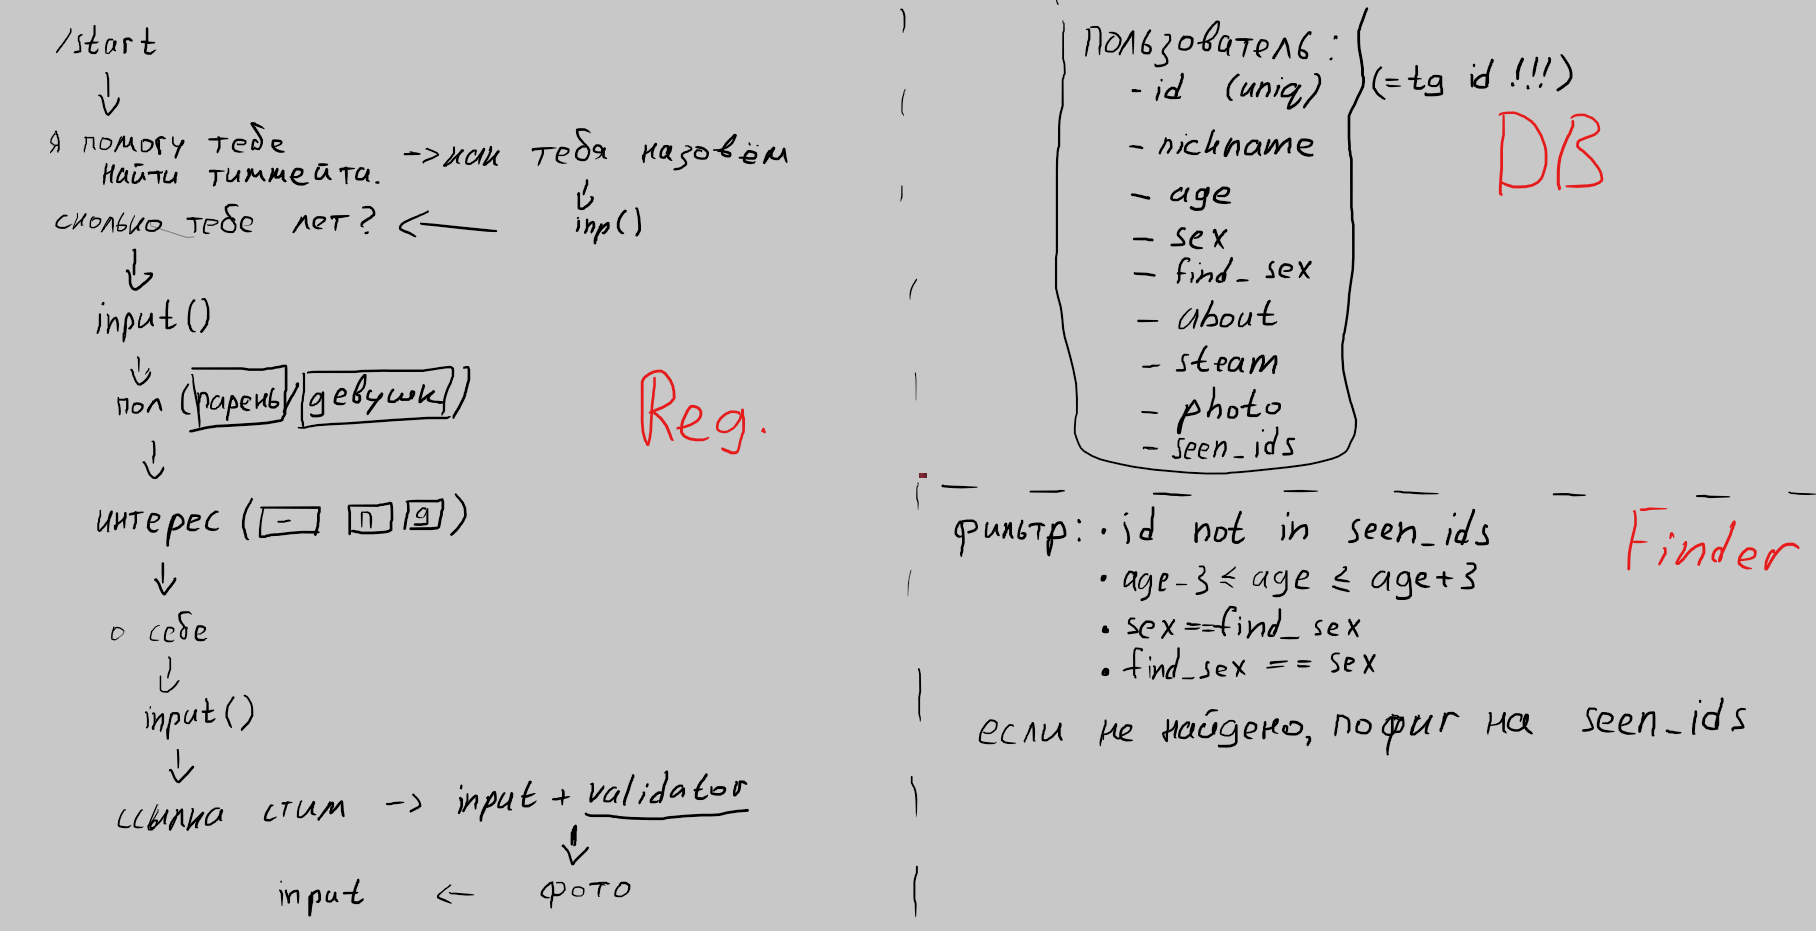 /start
↓
я помогу тебе
найти тиммейта.
-> как тебя назовём
↓
inp()
←
сколько тебе лет?
↓
input()
↓
пол (парень/девушк)
↓
интерес (- п д)
↓
о себе
↓
input()
↓
ссылка стим -> input + validator
↓
фото
←
input
Reg.
пользователь:
- id (uniq) (=tg id !!!)
- nickname
- age
- sex
- find_sex
- about
- steam
- photo
- seen_ids
DB
фильтр: • id not in seen_ids
• age-3 ≤ age ≤ age+3
• sex==find_sex
• find_sex == sex
если не найдено, пофиг на seen_ids
Finder